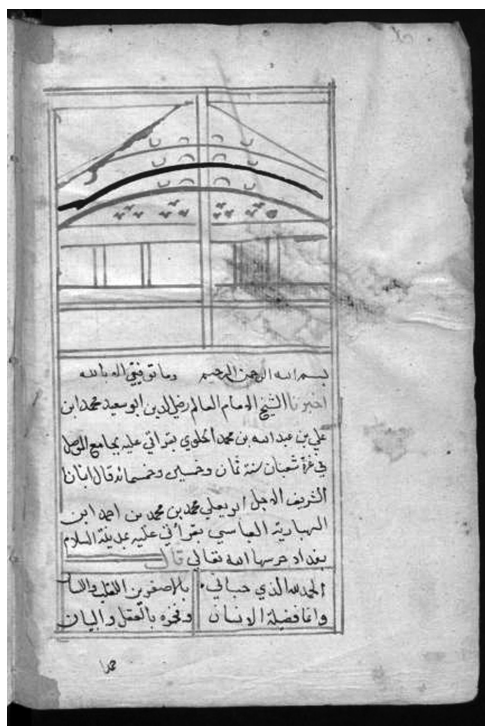 بسم الله الرحمن الرحيم وما توفيقي الا بالله
اخبرنا الشيخ الامام العالم رضي الدين ابو سعيد محمد ابن
علي بن عبد الله بن محمد بقراتي عليه بجامع الموصل
في غرة شعبان سنة ثمان وخمسين وخمسمائه قال
الشريف الاجل ابو يعلي محمد بن محمد بن احمد ابن
الهبارية العباسي بقراتي عليه بمدينة السلام
بغداد حرسها الله تعالي قال
الحمد لله الذي حباني بالاصغرين القلب واللسان
وانما فضيلة الانسان وفخره بالعقل والبيان